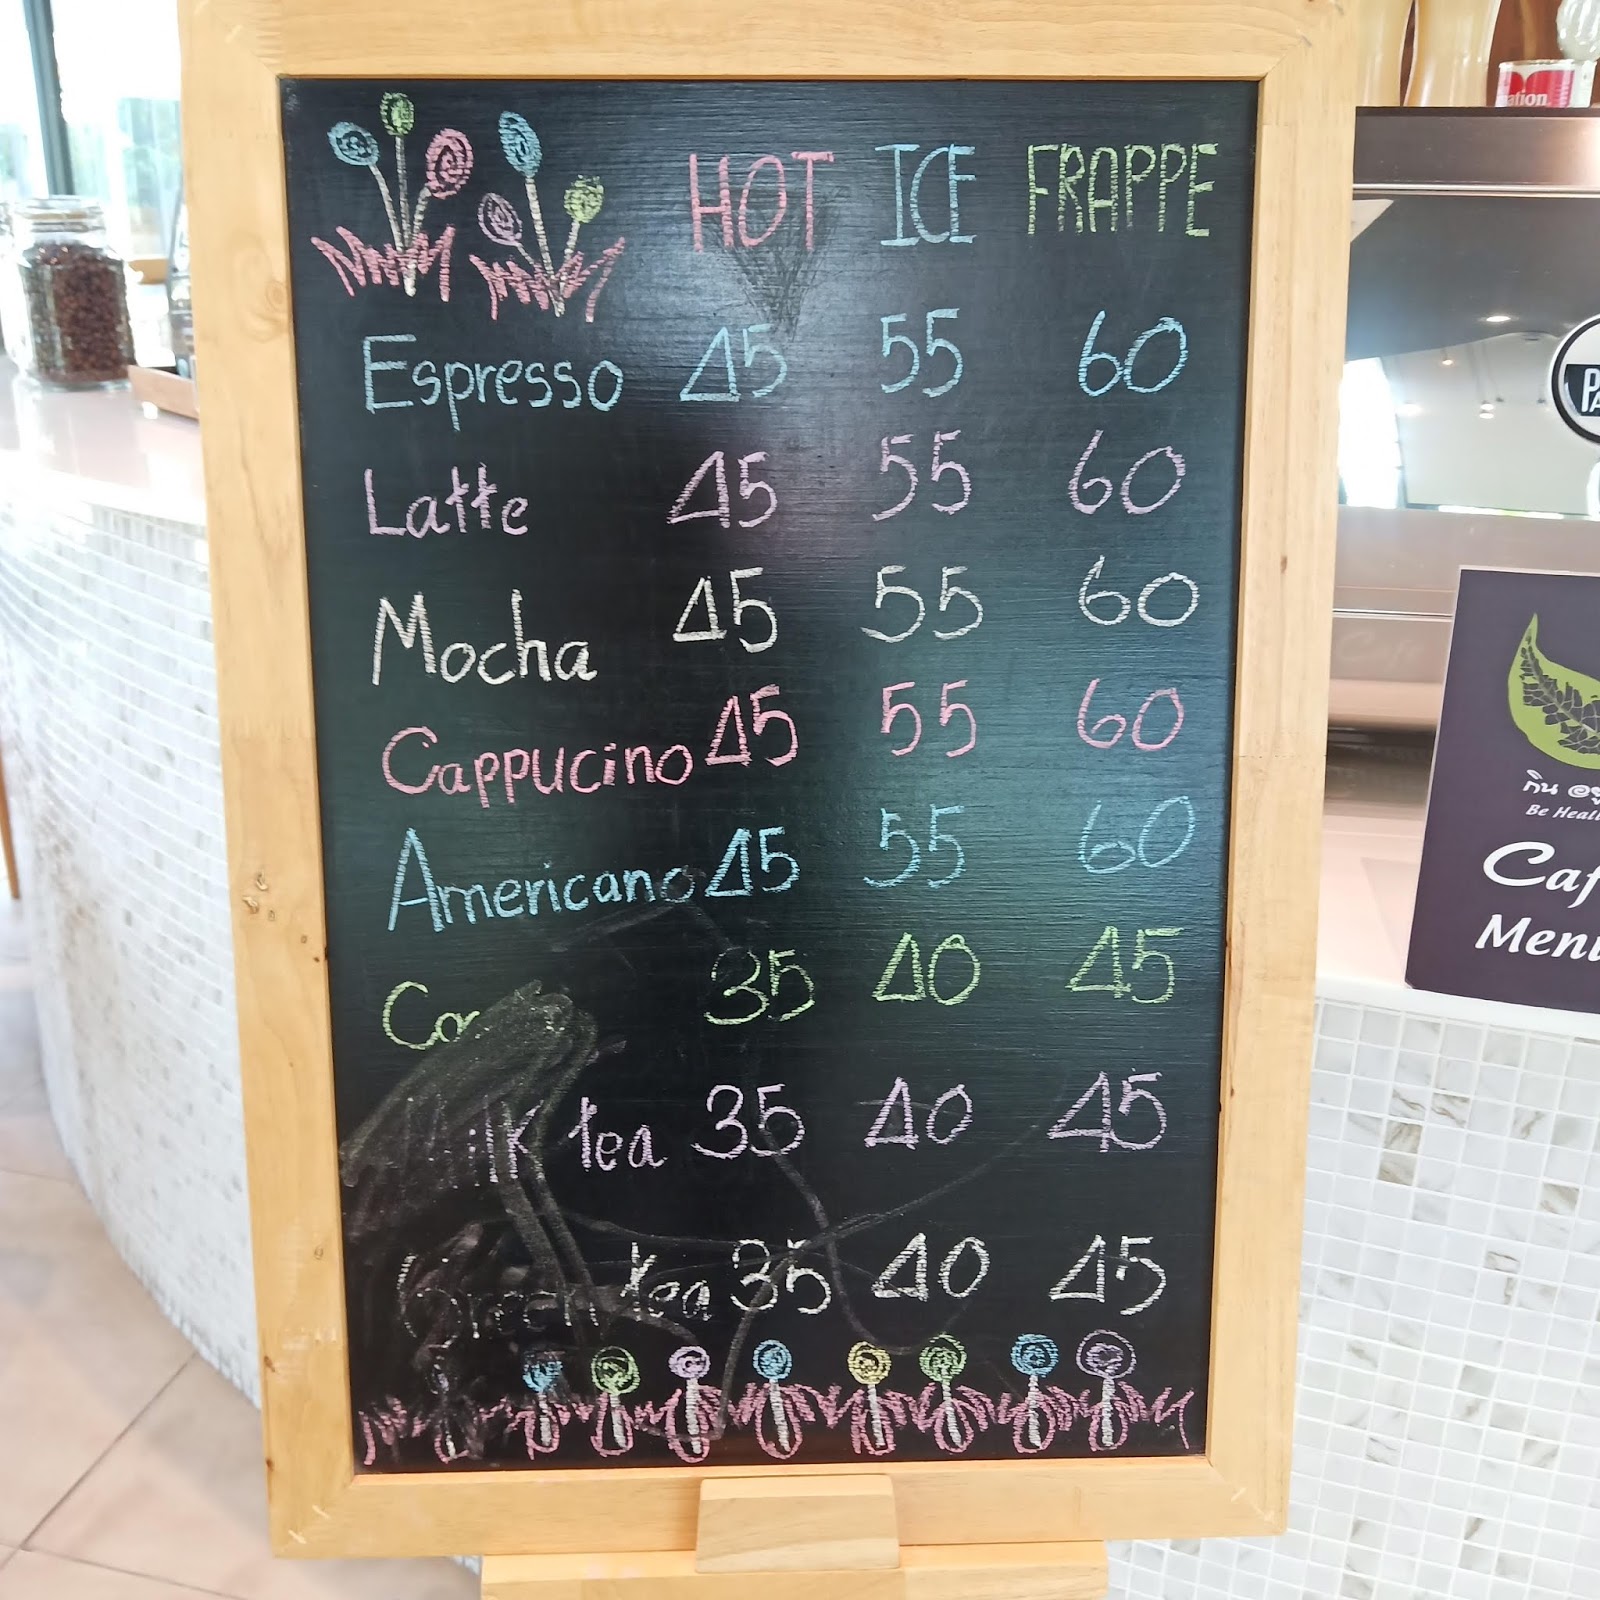 HOT ICE FRAPPE
Espresso 45 55 60
Latte 45 55 60
Mocha 45 55 60
Cappucino 45 55 60
Americano 45 55 60
35 40 45
Milk tea 35 40 45
Green tea 35 40 45
กิน
Be
Menu